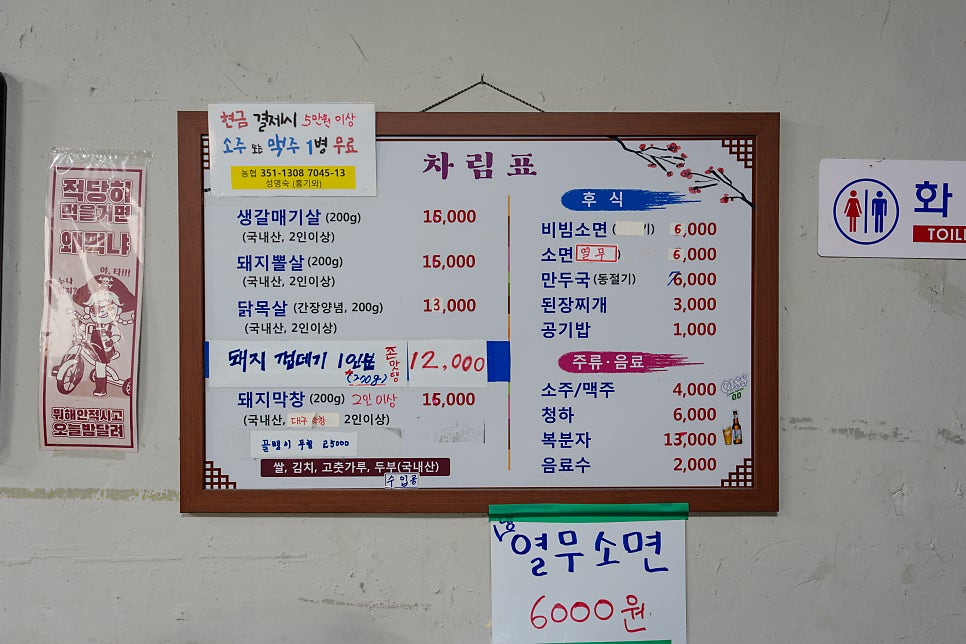 현금 결제시 5만원 이상
소주 또는 맥주 1병 무료
농협 351-1308 7045-13
성명숙 (홍기와)
차림표
생갈매기살 (200g) 15,000
(국내산, 2인이상)
돼지뽈살 (200g) 15,000
(국내산, 2인이상)
닭목살 (간장양념, 200g) 13,000
(국내산, 2인이상)
돼지 껍데기 1인분 존맛탱 12,000
(200g)
돼지막창 (200g) 2인 이상 15,000
(국내산, 대구 막창 2인이상)
골뱅이 무침 25000
쌀, 김치, 고춧가루, 두부(국내산)
수입용
후식
비빔소면 ( 기) 6,000
소면 열무 6,000
만두국 (동절기) 6,000
된장찌개 3,000
공기밥 1,000
주류·음료
소주/맥주 4,000
cass
청하 6,000
복분자 13,000
음료수 2,000
냉
열무소면
6000원
적당히
먹을거면
왜먹냐
아, 타!!!
누나
뭐해안적시고
오늘밤달려
화
TOIL